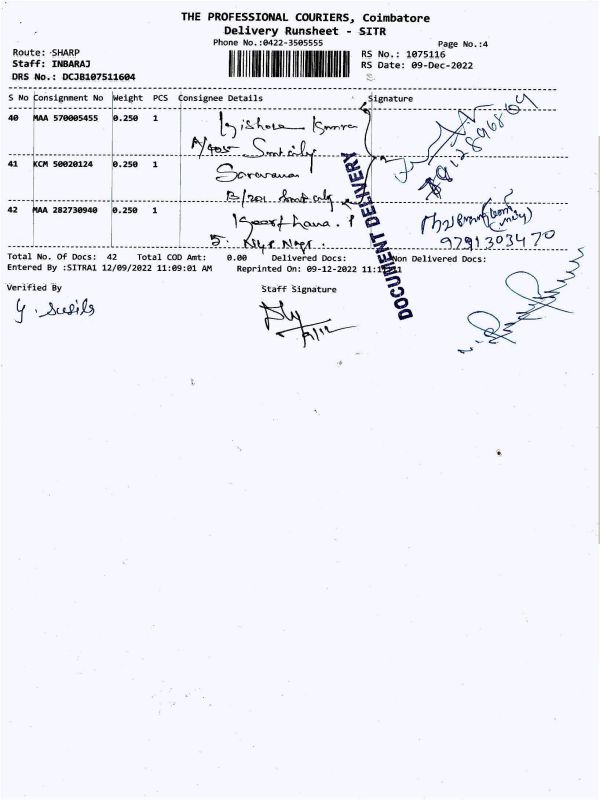 THE PROFESSIONAL COURIERS, Coimbatore
Delivery Runsheet - SITR
Phone No.:0422-3505555
Page No.:4
Route: SHARP
RS No.: 1075116
Staff: INBARAJ
RS Date: 09-Dec-2022
DRS No.: DCJB107511604
S No Consignment No Weight PCS Consignee Details Signature
40 MAA 570005455 0.250 1 Kishore Kumar
A/405 Smtcity
41 KCM 50020124 0.250 1 Saravana
B/201 Smtcity
42 MAA 282730940 0.250 1 Keerthana. P
5.
9791303470
DOCUMENT DELIVERY
Total No. Of Docs: 42 Total COD Amt: 0.00 Delivered Docs: Non Delivered Docs:
Entered By :SITRA1 12/09/2022 11:09:01 AM Reprinted On: 09-12-2022
Verified By Staff Signature